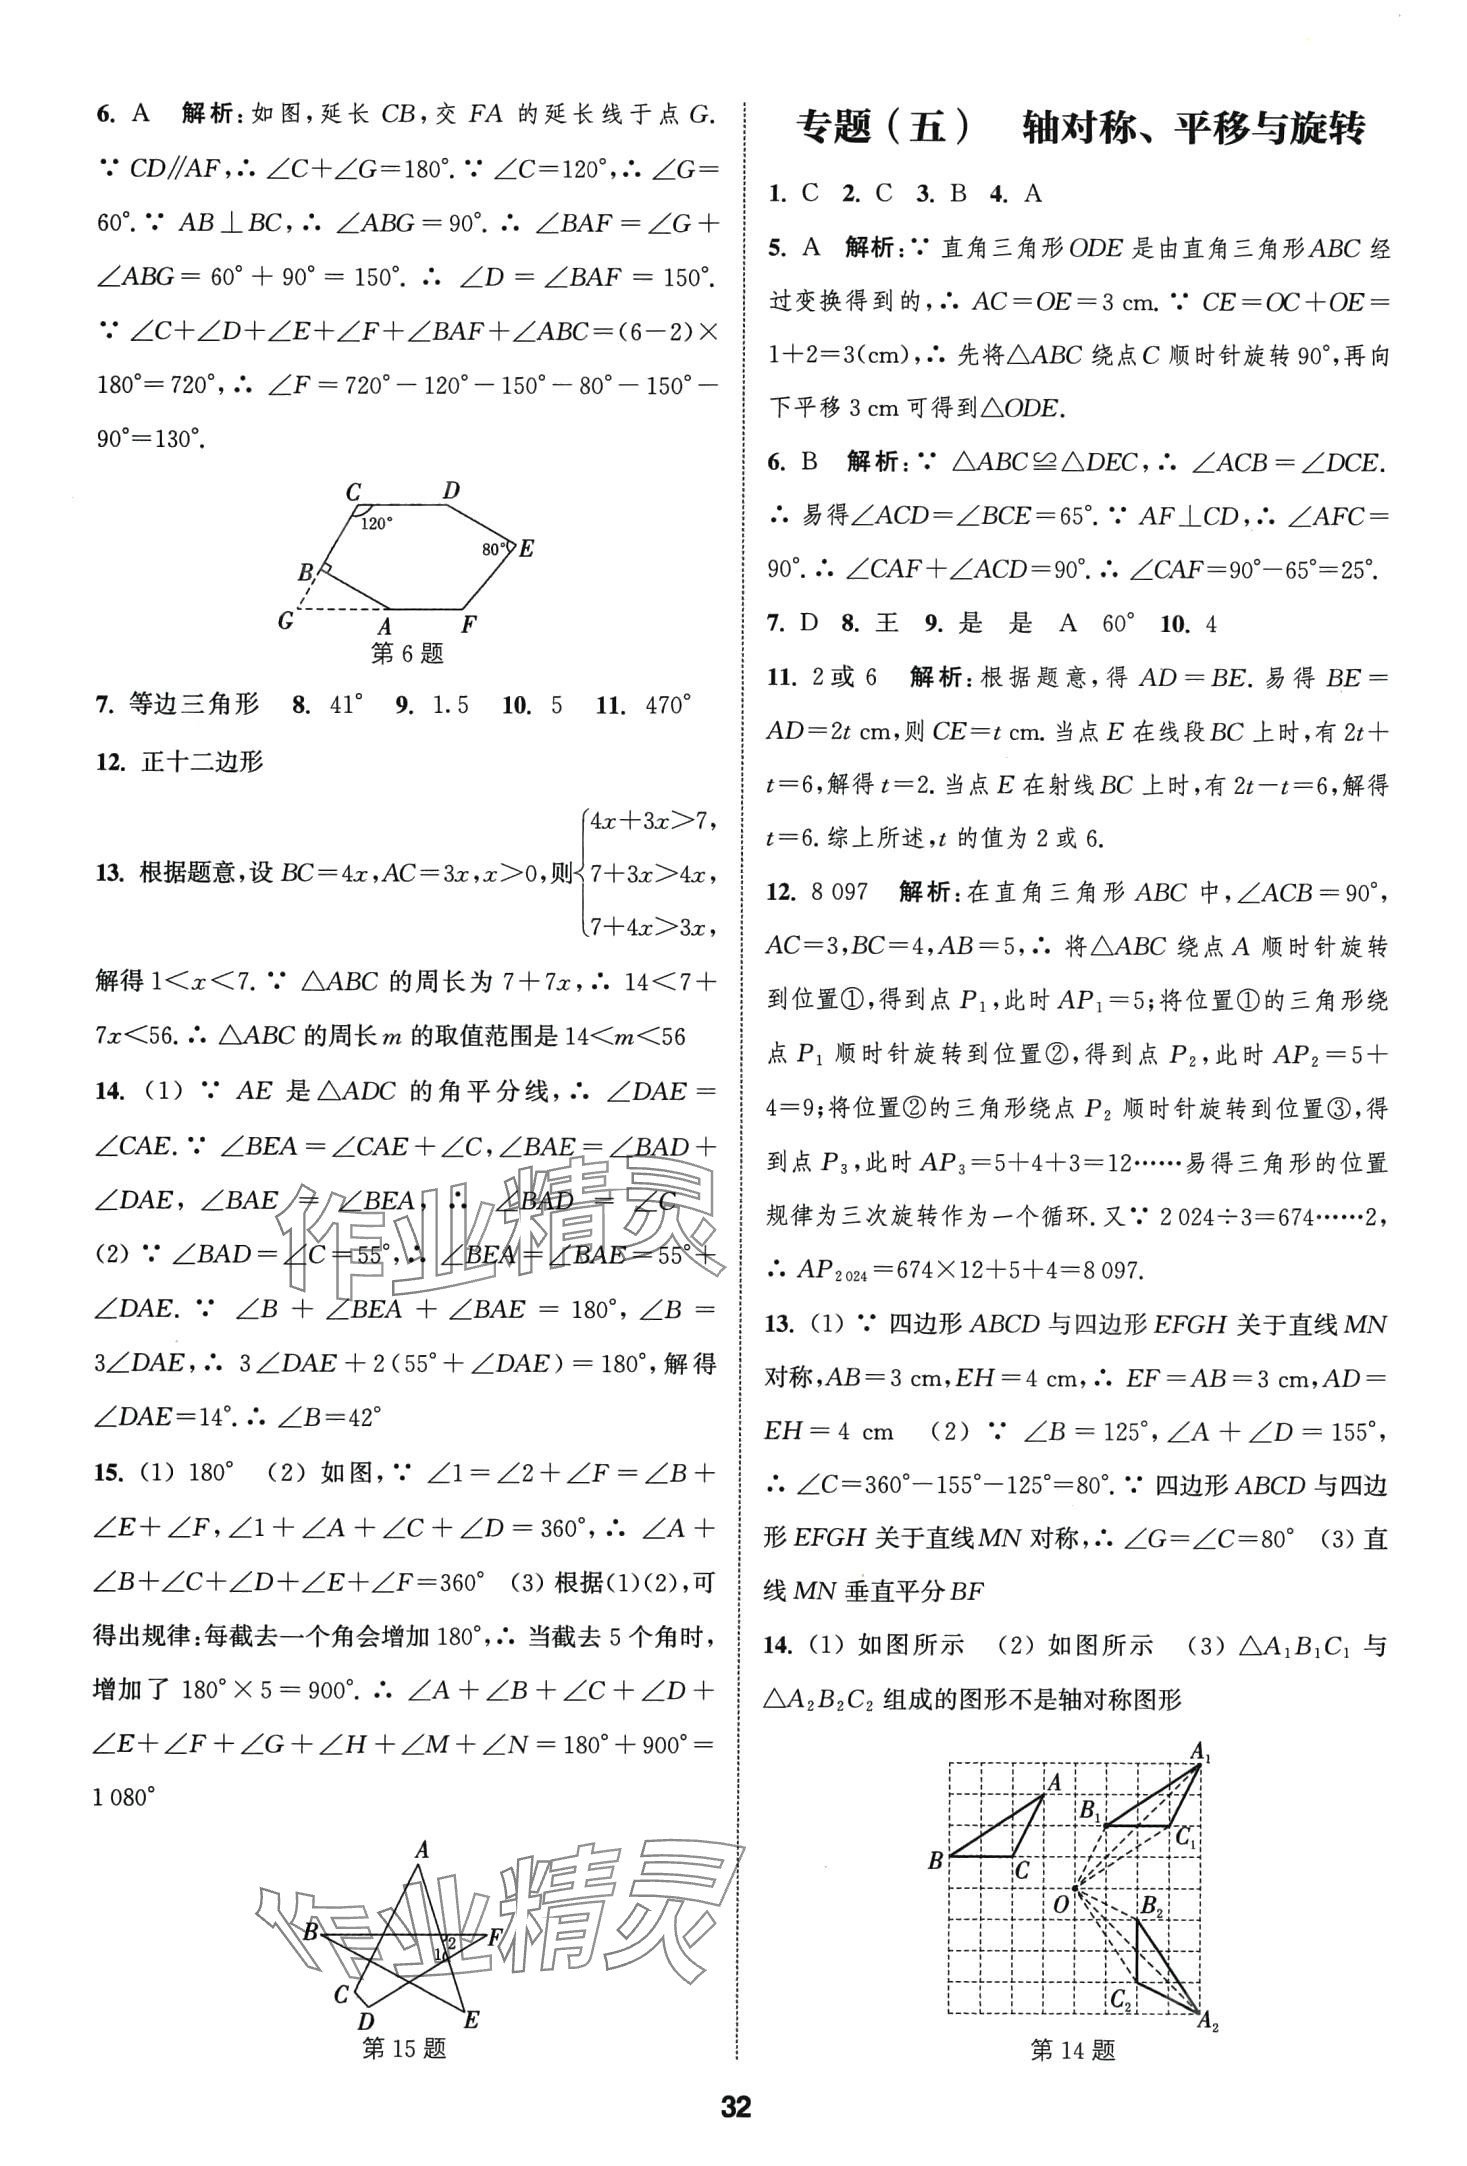 6. A 解析:如图,延长 CB,交 FA 的延长线于点 G.
∵ CD∥AF,∴ ∠C+∠G=180°.∵ ∠C=120°,∴ ∠G=
60°.∵ AB⊥BC,∴ ∠ABG=90°.∴ ∠BAF=∠G+
∠ABG=60°+90°=150°.∴ ∠D=∠BAF=150°.
∵ ∠C+∠D+∠E+∠F+∠BAF+∠ABC=(6-2)×
180°=720°,∴ ∠F=720°-120°-150°-80°-150°-
90°=130°.
C D
120°
80° E
B
G A F
第6题
7. 等边三角形 8. 41° 9. 1.5 10. 5 11. 470°
12. 正十二边形
4x+3x>7,
13. 根据题意,设 BC=4x,AC=3x,x>0,则{7+3x>4x,
7+4x>3x,
解得1<x<7.∵ △ABC 的周长为 7+7x,∴ 14<7+
7x<56.∴ △ABC 的周长 m 的取值范围是 14<m<56
14. (1) ∵ AE 是△ADC 的角平分线,∴ ∠DAE=
∠CAE.∵ ∠BEA=∠CAE+∠C,∠BAE=∠BAD+
∠DAE,∠BAE=∠BEA,∴ ∠BAD=∠C
(2) ∵ ∠BAD=∠C=55°,∴ ∠BEA=∠BAE=55°+
∠DAE.∵ ∠B+∠BEA+∠BAE=180°,∠B=
3∠DAE,∴ 3∠DAE+2(55°+∠DAE)=180°,解得
∠DAE=14°.∴ ∠B=42°
15. (1) 180° (2) 如图,∵ ∠1=∠2+∠F=∠B+
∠E+∠F,∠1+∠A+∠C+∠D=360°,∴ ∠A+
∠B+∠C+∠D+∠E+∠F=360° (3) 根据(1)(2),可
得出规律:每截去一个角会增加 180°,∴ 当截去 5 个角时,
增加了 180°×5=900°.∴ ∠A+∠B+∠C+∠D+
∠E+∠F+∠G+∠H+∠M+∠N=180°+900°=
1 080°
A
B 2 F
1
C
D E
第15题
作业精灵
作业精灵
专题(五) 轴对称、平移与旋转
1. C 2. C 3. B 4. A
5. A 解析:∵ 直角三角形ODE 是由直角三角形ABC 经
过变换得到的,∴ AC=OE=3 cm.∵ CE=OC+OE=
1+2=3(cm),∴ 先将△ABC 绕点C 顺时针旋转 90°,再向
下平移 3 cm 可得到△ODE.
6. B 解析:∵ △ABC≌△DEC,∴ ∠ACB=∠DCE.
∴ 易得∠ACD=∠BCE=65°.∵ AF⊥CD,∴ ∠AFC=
90°.∴ ∠CAF+∠ACD=90°.∴ ∠CAF=90°-65°=25°.
7. D 8. 王 9. 是 是 A 60° 10. 4
11. 2或 6 解析:根据题意,得 AD=BE.易得 BE=
AD=2t cm,则 CE=t cm.当点 E 在线段 BC 上时,有 2t+
t=6,解得 t=2.当点 E 在射线 BC 上时,有 2t-t=6,解得
t=6.综上所述,t 的值为 2 或 6.
12. 8 097 解析:在直角三角形 ABC 中,∠ACB=90°,
AC=3,BC=4,AB=5,∴ 将△ABC 绕点 A 顺时针旋转
到位置①,得到点 P₁,此时 AP₁=5;将位置①的三角形绕
点 P₁ 顺时针旋转到位置②,得到点 P₂,此时 AP₂=5+
4=9;将位置②的三角形绕点 P₂ 顺时针旋转到位置③,得
到点 P₃,此时 AP₃=5+4+3=12……易得三角形的位置
规律为三次旋转作为一个循环.又∵ 2 024÷3=674……2,
∴ AP₂₀₂₄=674×12+5+4=8 097.
13. (1) ∵ 四边形 ABCD 与四边形 EFGH 关于直线 MN
对称,AB=3 cm,EH=4 cm,∴ EF=AB=3 cm,AD=
EH=4 cm (2) ∵ ∠B=125°,∠A+∠D=155°,
∴ ∠C=360°-155°-125°=80°.∵ 四边形 ABCD 与四边
形 EFGH 关于直线 MN 对称,∴ ∠G=∠C=80° (3) 直
线 MN 垂直平分 BF
14. (1) 如图所示 (2) 如图所示 (3) △A₁B₁C₁ 与
△A₂B₂C₂ 组成的图形不是轴对称图形
A₁
A
B₁
C₁
B C
O B₂
C₂
A₂
第14题
32